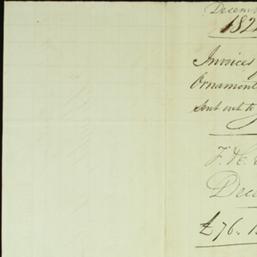 Decem
182
Invoices
Ornament
sent out to
F. H.
Dec
£76.1